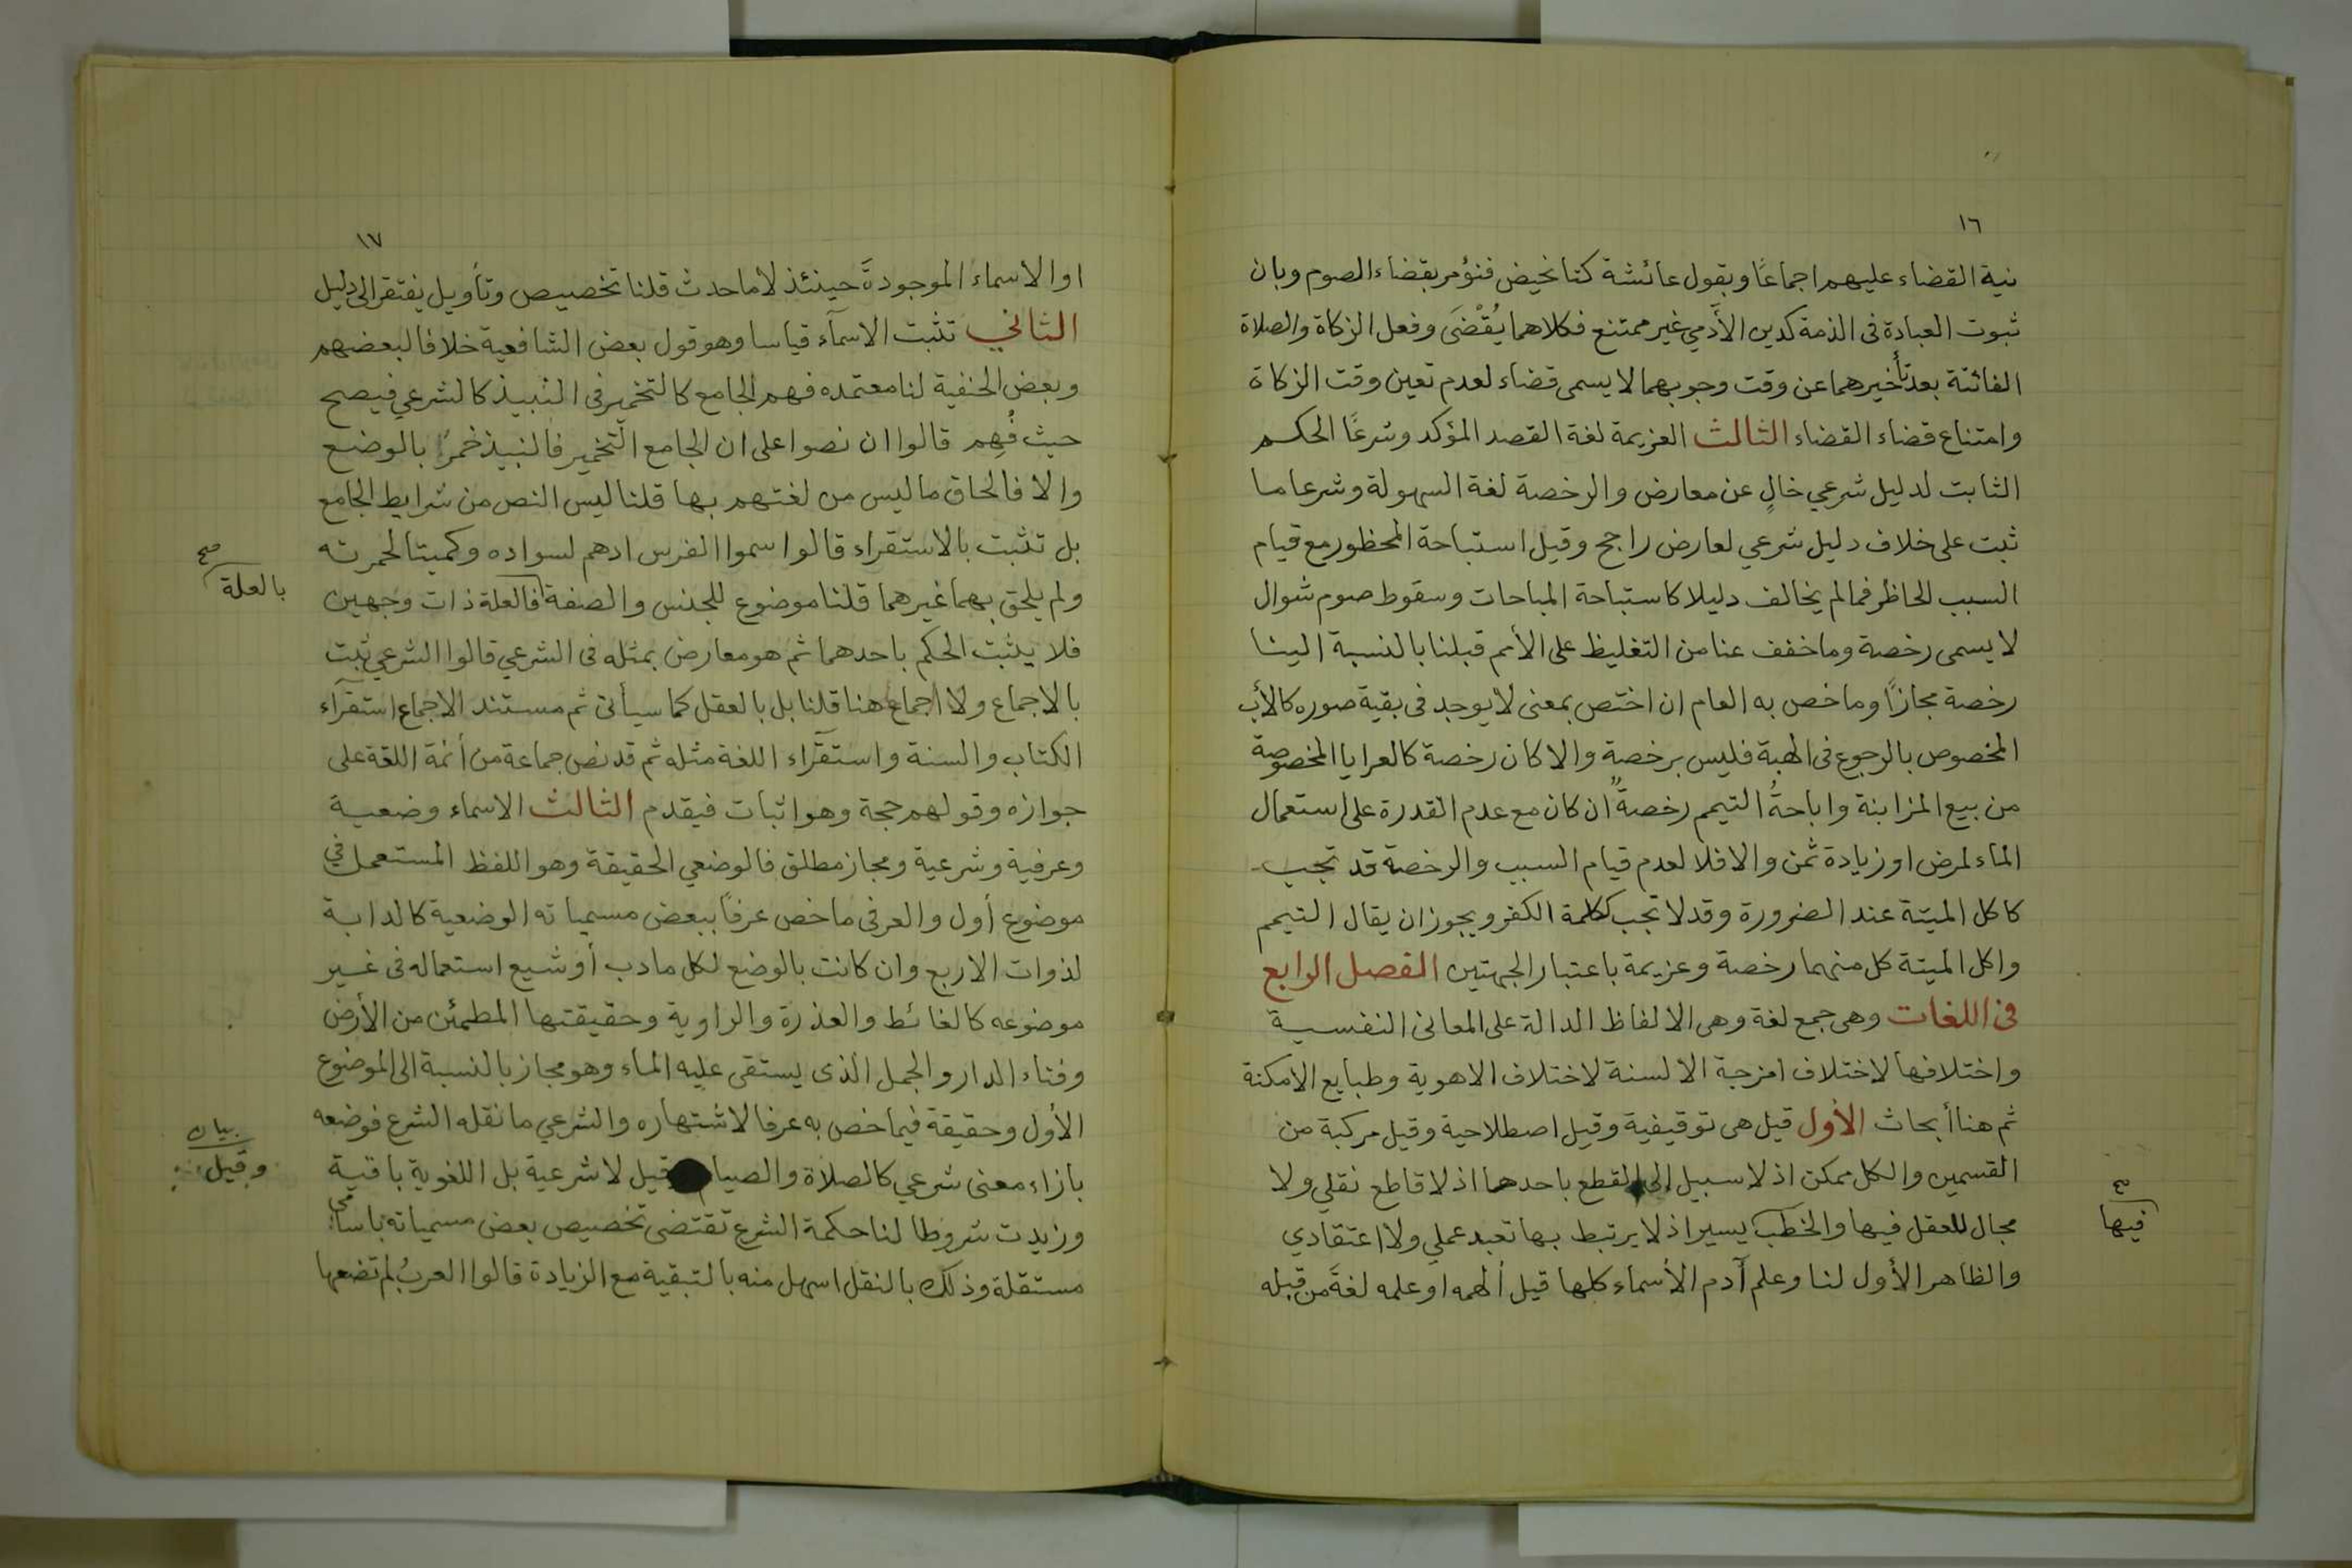 ١٦
نية القضاء عليهم اجماعًا وبقول عائشة كنا نحيض فنؤمر بقضاء الصوم وبان
ثبوت العبادة فى الذمة كدين الأدمي غير ممتنع فكلاهما يُقْضَى وفعل الزكاة والصلاة
الفائتة بعد تأخيرهما عن وقت وجوبهما لا يسمى قضاء لعدم تعين وقت الزكاة
وامتناع قضاء القضاء الثالث العزيمة لغة القصد المؤكد وشرعًا الحكم
الثابت لدليل شرعي خالٍ عن معارض والرخصة لغة السهولة وشرعا ما
ثبت على خلاف دليل شرعي لعارض راجح وقيل استباحة المحظور مع قيام
السبب الحاظر فما لم يخالف دليلا كاستباحة المباحات وسقوط صوم شوال
لا يسمى رخصة وما خفف عنا من التغليظ على الأمم قبلنا بالنسبة الينا
رخصة مجازًا وما خص به العام ان اختص بمعنى لا يوجد فى بقية صوره كالأب
المخصوص بالرجوع فى الهبة فليس برخصة والا كان رخصة كالعرايا المخصوصة
من بيع المزابنة واباحةُ التيمم رخصةٌ ان كان مع عدم القدرة على استعمال
الماء لمرض او زيادة ثمن والا فلا لعدم قيام السبب والرخصة قد تجب
كاكل الميتة عند الضرورة وقد لا تجب ككلمة الكفر ويجوز ان يقال التيمم
واكل الميتة كل منهما رخصة وعزيمة باعتبار الجهتين الفصل الرابع
فى اللغات وهى جمع لغة وهى الالفاظ الدالة على المعانى النفسية
واختلافها لاختلاف امزجة الالسنة لاختلاف الاهوية وطبايع الامكنة
ثم هنا أبحاث الأول قيل هى توقيفية وقيل اصطلاحية وقيل مركبة من
القسمين والكل ممكن اذ لا سبيل الى القطع باحدها اذ لا قاطع نقلي ولا
مجال للعقل فيها والخطب يسير اذ لا يرتبط بها تعبد عملي ولا اعتقادي
والظاهر الأول لنا وعلم آدم الأسماء كلها قيل ألهمه او علمه لغةَ من قبله
صح
فيها
١٧
او الاسماء الموجودةَ حينئذ لا ما حدث قلنا تخصيص وتأويل يفتقر الى دليل
الثاني تثبت الاسمآء قياسا وهو قول بعض الشافعية خلافا لبعضهم
وبعض الحنفية لنا معتمده فهم الجامع كالتخمير فى النبيذ كالشرعي فيصح
حيث فُهِم قالوا ان نصوا على ان الجامع التخمير فالنبيذ خمرٌ بالوضع
والا فالحاق ما ليس من لغتهم بها قلنا ليس النص من شرايط الجامع
بل تثبت بالاستقراء قالوا سموا الفرس ادهم لسواده وكميتا لحمرته
ولم يلحق بهما غيرهما قلنا موضوع للجنس والصفة فالعلة ذات وجهين
فلا يثبت الحكم باحدهما ثم هو معارض بمثله فى الشرعي قالوا الشرعي ثبت
بالاجماع ولا اجماع هنا قلنا بل بالعقل كما سيأتى ثم مستند الاجماع استقرآء
الكتاب والسنة واستقرآء اللغة مثله ثم قد نص جماعة من أئمة اللغة على
جوازه وقولهم حجة وهو اثبات فيقدم الثالث الاسماء وضعية
وعرفية وشرعية ومجاز مطلق فالوضعي الحقيقة وهو اللفظ المستعمل في
موضوع أول والعرفى ما خص عرفاً ببعض مسمياته الوضعية كالدابة
لذوات الاربع وان كانت بالوضع لكل ما دب أو شيع استعماله فى غير
موضوعه كالغائط والعذرة والراوية وحقيقتها المطمئن من الأرض
وفناء الدار والجمل الذى يستقى عليه الماء وهو مجاز بالنسبة الى الموضوع
الأول وحقيقة فيما خص به عرفا لاشتهاره والشرعي ما نقله الشرع فوضعه
بازاء معنى شرعي كالصلاة والصيام وقيل لا شرعية بل اللغوية باقية
وزيدت شروطا لنا حكمة الشرع تقتضى تخصيص بعض مسمياته باسامى
مستقلة وذلك بالنقل اسهل منه بالتبقية مع الزيادة قالوا العربُ لم تضعها
صح
بالعلة
بيان
وقيل